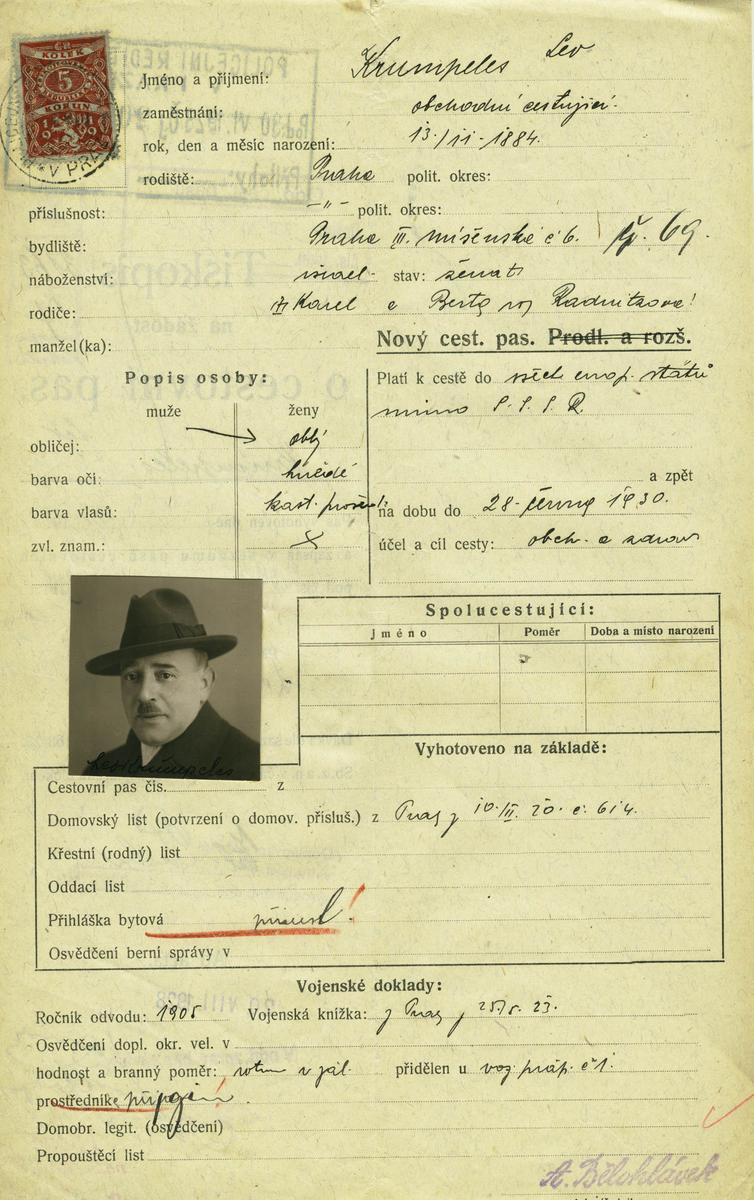 KOLEK
5
KORUN
1919
V PRA
Krumpeles Lev
Jméno a příjmení:
zaměstnání: obchodní cestující.
rok, den a měsíc narození: 13/11-1884.
rodiště: Praha polit. okres:
příslušnost: -"- polit. okres:
bydliště: Praha III. míšenská č 6. 69.
náboženství: israel- stav: ženat
rodiče: Karel a Berta roz Radnitzova!
manžel(ka):
Nový cest. pas. Prodl. a rozš.
Popis osoby:
muže ženy
obličej: oblý
barva očí: hnědé
barva vlasů: kašt.
zvl. znam.: X
Platí k cestě do všech evrop. států
mimo S.S.S.R.
a zpět
na dobu do 28. června 1930.
účel a cíl cesty: obch. a zdrav
Spolucestující:
Jméno Poměr Doba a místo narození
Lev Krumpeles
Vyhotoveno na základě:
Cestovní pas čís. z
Domovský list (potvrzení o domov. přísluš.) z Prahy 10.III.20. č. 614.
Křestní (rodný) list
Oddací list
Přihláška bytová !
Osvědčení berní správy v
Vojenské doklady:
Ročník odvodu: 1905 Vojenská knížka: z Prahy 23.
Osvědčení dopl. okr. vel. v
hodnost a branný poměr: v zál. přidělen u voz. práp. č 1.
prostředník
Domobr. legit. (osvědčení)
Propouštěcí list
A. Bělohlávek